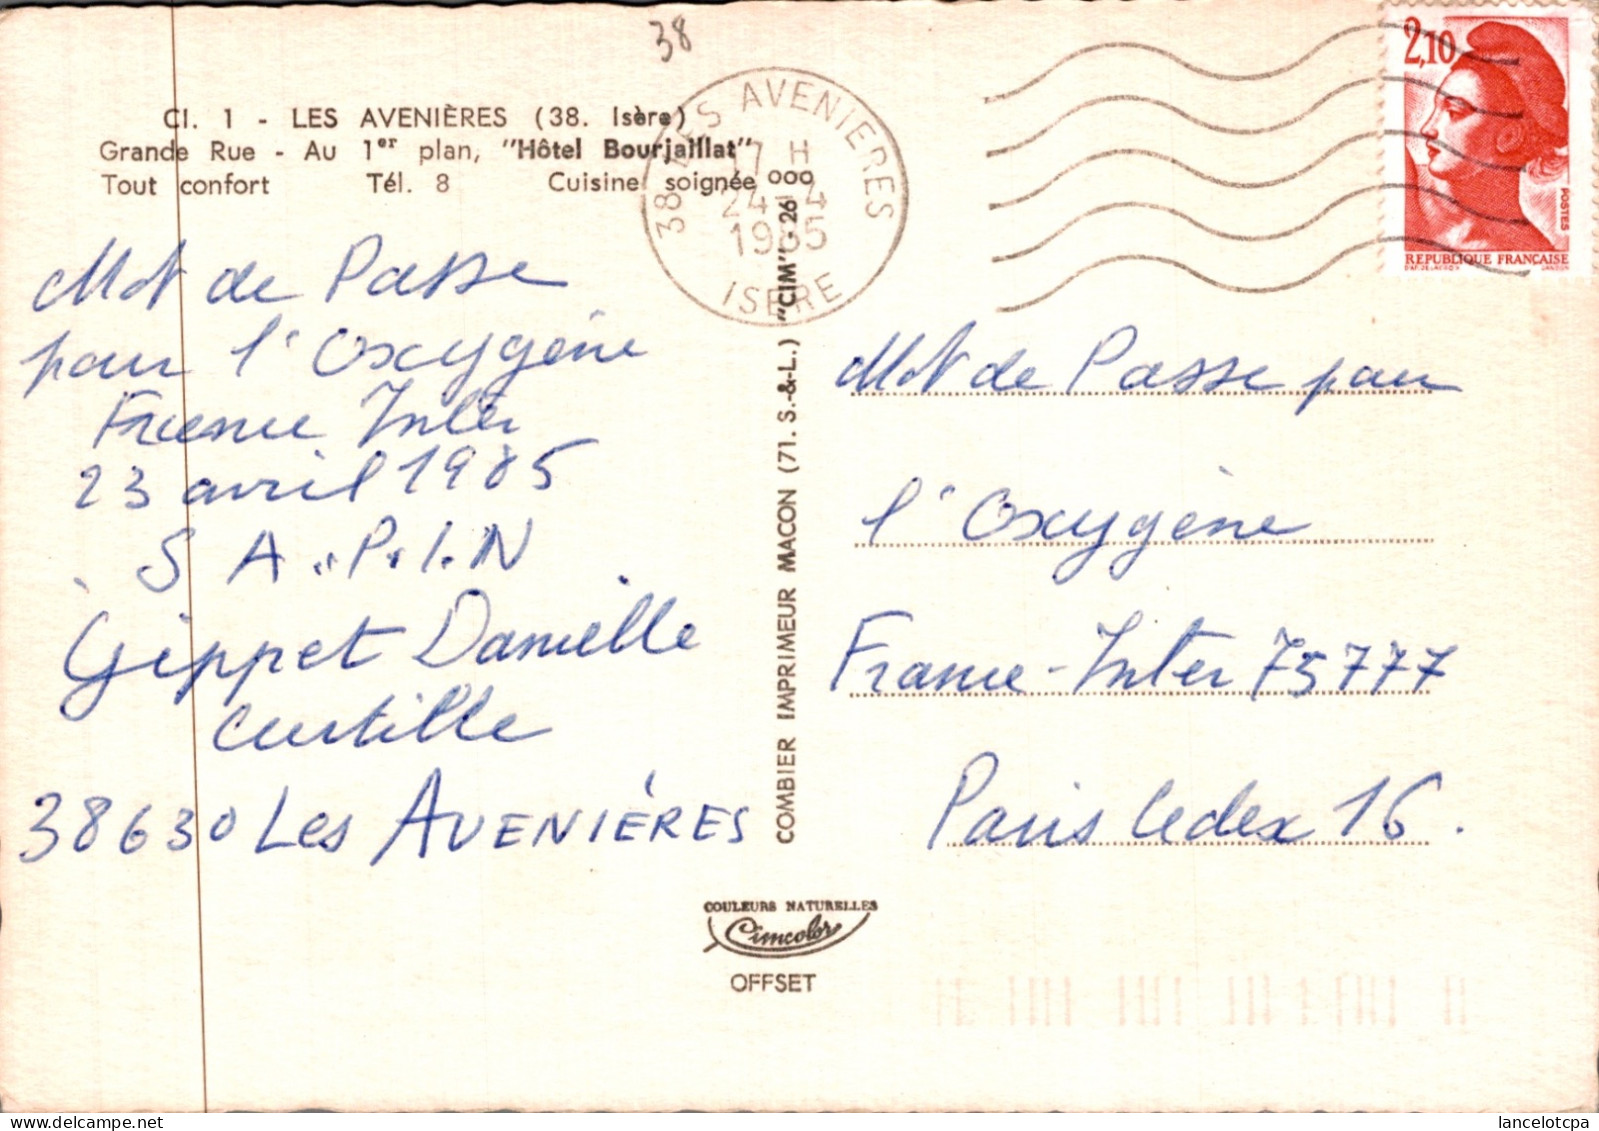 38
Cl. 1 - LES AVENIÈRES (38. Isère)
Grande Rue - Au 1er plan, "Hôtel Bourjaillat"
Tout confort Tél. 8 Cuisine soignée ooo
38 LES AVENIERES
17 H
24-4
1985
ISERE
2,10
POSTES
REPUBLIQUE FRANÇAISE
Mot de Passe
pour l'Oxygène
France Inter
23 avril 1985
S A.P.I.N
Gippet Danielle
Curtille
38630 Les AVENIÈRES
COMBIER IMPRIMEUR MACON (71. S.-&-L.) "CIM" - 26
Mot de Passe pour
l'Oxygène
France-Inter 75777
Paris Cedex 16.
COULEURS NATURELLES
Cimcolor
OFFSET
lancelotcpa